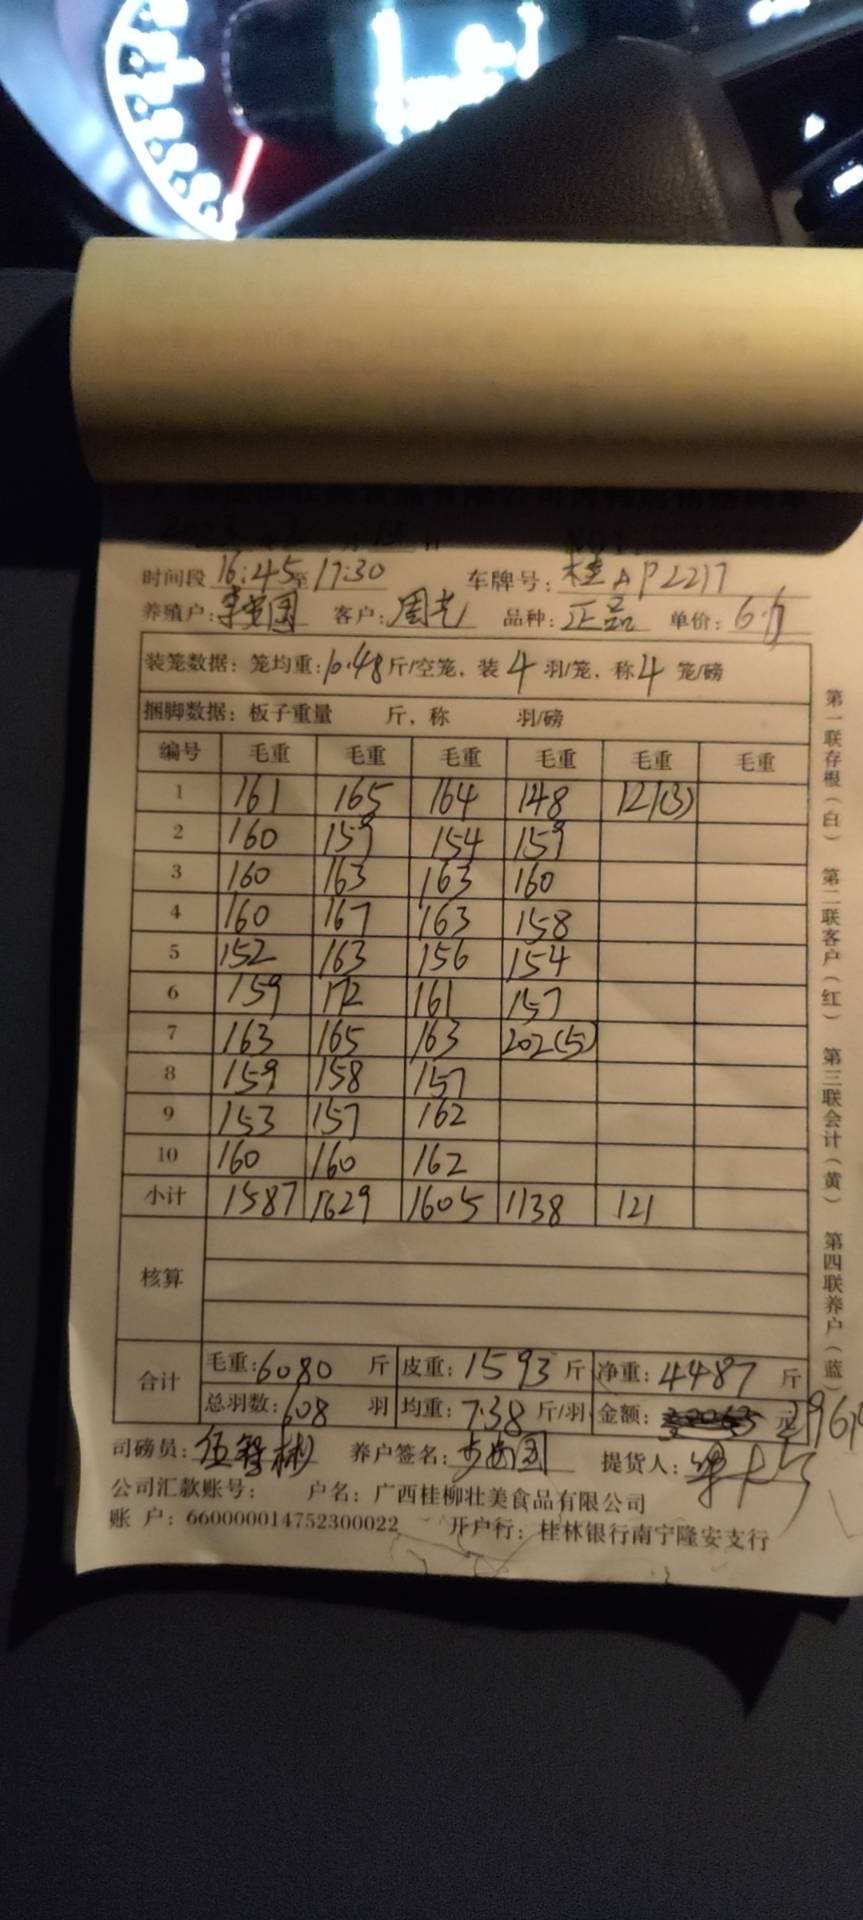 时间段 16:45至17:30 车牌号: 桂AP2217
养殖户: 李安国 客户: 周老 品种: 正品 单价: 6.6
装笼数据: 笼均重: 10.48斤/空笼, 装 4 羽/笼, 称 4 笼/磅
捆脚数据: 板子重量 斤, 称 羽/磅
编号 毛重 毛重 毛重 毛重 毛重 毛重
1 161 165 164 148 121(3)
2 160 159 154 159
3 160 163 163 160
4 160 167 163 158
5 152 163 156 154
6 159 172 161 157
7 163 165 163 202(5)
8 159 158 157
9 153 157 162
10 160 160 162
小计 1587 1629 1605 1138 121
核算
合计 毛重: 6080 斤 皮重: 1593 斤 净重: 4487 斤
总羽数: 608 羽 均重: 7.38 斤/羽 金额: 元
司磅员: 伍智彬 养户签名: 提货人:
公司汇款账号: 户名: 广西桂柳壮美食品有限公司
账 户: 660000014752300022 开户行: 桂林银行南宁隆安支行
第一联存根(白) 第二联客户(红) 第三联会计(黄) 第四联养户(蓝)